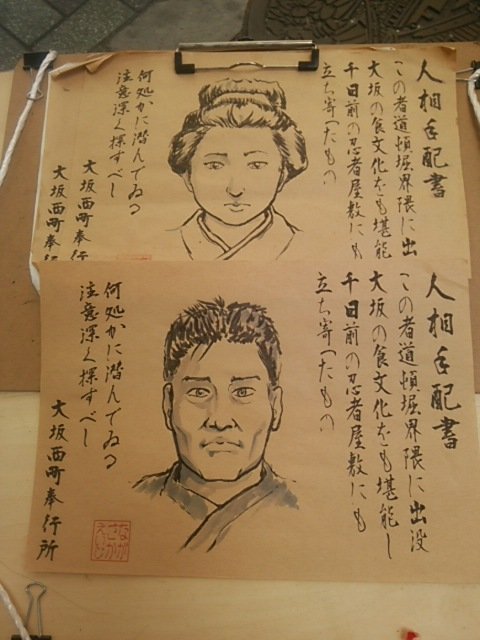 人相手配書
この者道頓堀界隈に出
大坂の食文化をも堪能
千日前の忍者屋敷にも
立ち寄ったもの
何処かに潜んでゐる
注意深く探すべし
大坂西町奉行
大坂西町奉行
人相手配書
この者道頓堀界隈に出没
大坂の食文化をも堪能し
千日前の忍者屋敷にも
立ち寄ったもの
何処かに潜んでゐる
注意深く探すべし
大坂西町奉行所